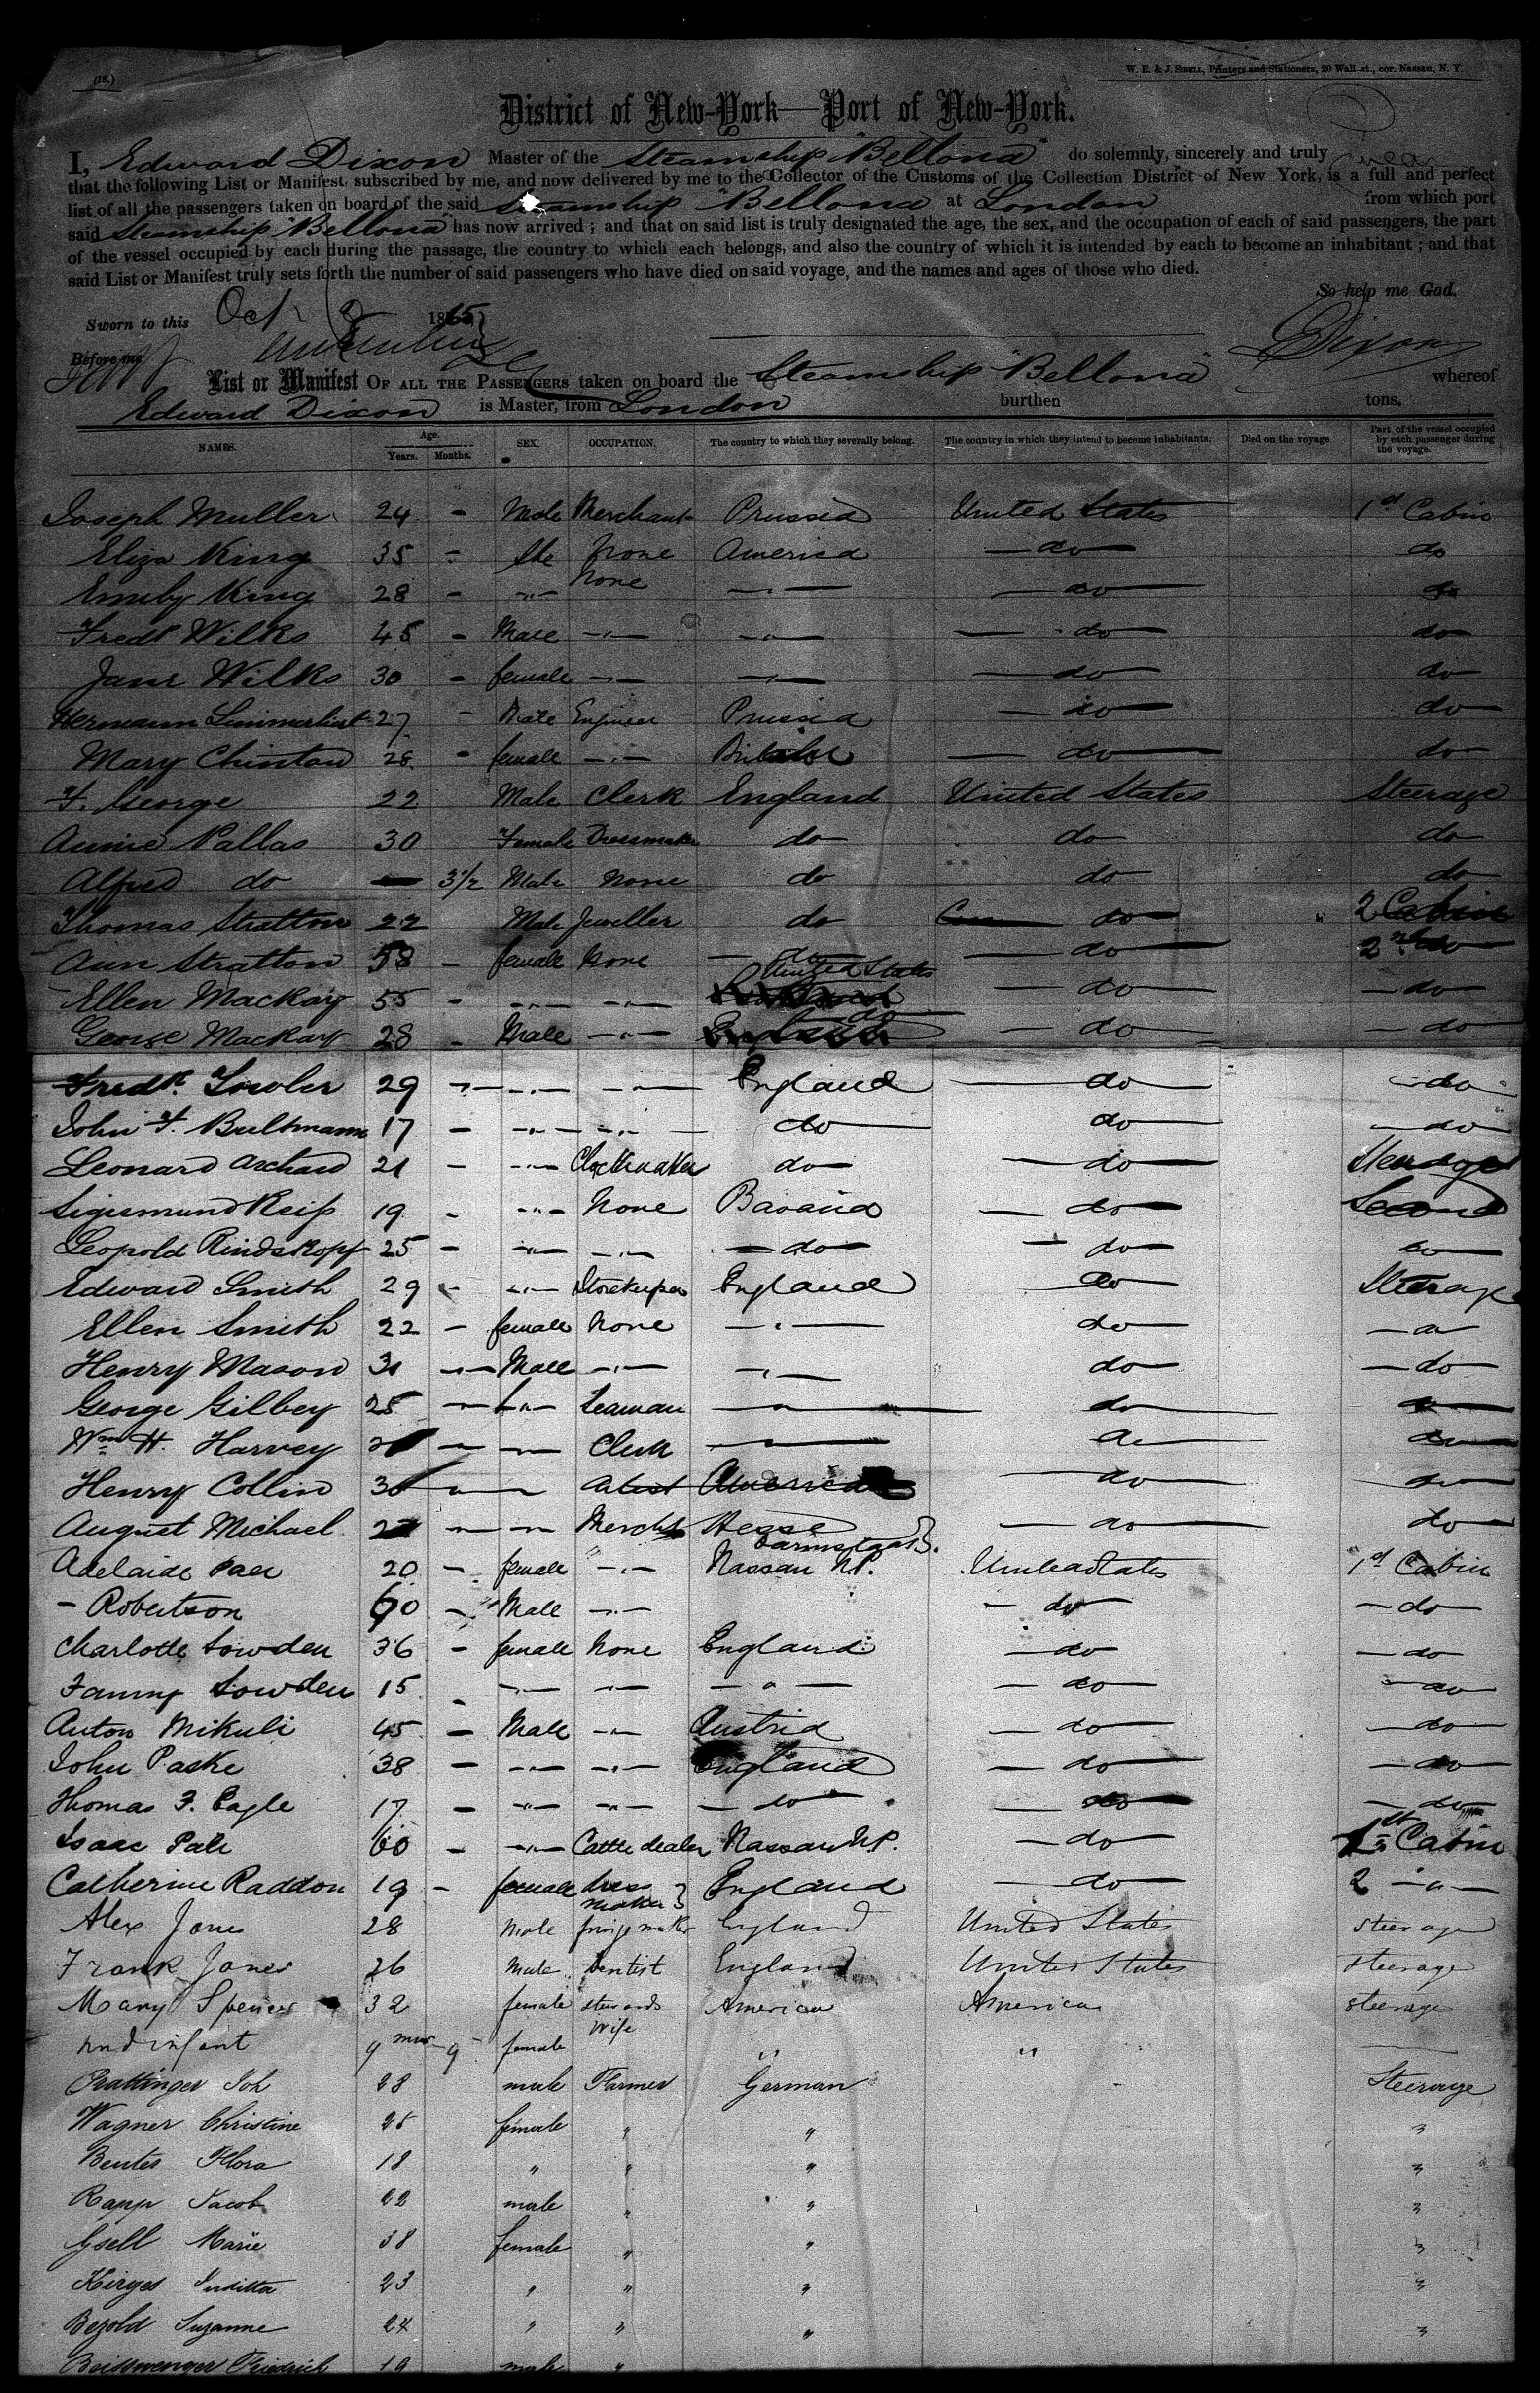 (18.)
W. E. & J. SIBELL, Printers and Stationers, 20 Wall-st., cor. Nassau, N. Y.
District of New-York—Port of New-York.
I, Edward Dixon Master of the Steamship "Bellona" do solemnly, sincerely and truly
that the following List or Manifest, subscribed by me, and now delivered by me to the Collector of the Customs of the Collection District of New York, is a full and perfect
list of all the passengers taken on board of the said Steamship "Bellona at London from which port
said Steamship "Bellona" has now arrived ; and that on said list is truly designated the age, the sex, and the occupation of each of said passengers, the part
of the vessel occupied by each during the passage, the country to which each belongs, and also the country of which it is intended by each to become an inhabitant ; and that
said List or Manifest truly sets forth the number of said passengers who have died on said voyage, and the names and ages of those who died.
So help me God.
Sworn to this Oct 1865
Before me Dixon
List or Manifest OF ALL THE PASSENGERS taken on board the Steamship "Bellona" whereof
Edward Dixon is Master, from London burthen tons.
NAMES. Age. Years. Months. SEX. OCCUPATION. The country to which they severally belong. The country in which they intend to become inhabitants. Died on the voyage Part of the vessel occupied by each passenger during the voyage.
Joseph Muller 24 - Male Merchant Prussia United States 1st Cabin
Eliza King 35 - None America do do
Emily King 28 - " None " do do
Fredk Wilks 45 - Male " " do do
Jane Wilks 30 - female " " do do
Hermann 27 - Male Engineer Prussia do do
Mary Chinton 28 - female " do do
F. George 22 Male Clerk England United States Steerage
Annie Pallas 30 Female Dressmaker do do do
Alfred do 3 1/2 Male None do do do
Thomas Stratton 22 Male Jeweller do do 2 Cabin
Ann Stratton 58 - female None do do 2nd do
Ellen Mackay 55 - " " United States do do
George Mackay 28 - Male " do do do
Fredk. Fowler 29 - " " England do do
John F. Bultmann 17 - " " do do do
Leonard Archard 21 - " Clockmaker do do Steerage
Sigismund Reiss 19 - " None Bavaria do Second
Leopold Rindskopf 25 - " " do do do
Edward Smith 29 - " Storekeeper England do Steerage
Ellen Smith 22 - female None " do "
Henry Mason 30 - Male " " do do
George Gilbey 25 - " Seaman " do do
Wm H. Harvey - " Clerk " do do
Henry Collin 30 - " Artist America do do
August Michael - " Mercht Hesse Darmstaat do do
Adelaide 20 - female " Nassau N.P. United States 1st Cabin
- Robertson 60 - Male " do do
Charlotte Sowden 36 - female None England do do
Fanny Sowden 15 - " " " do do
Anton Mikuli 45 - Male " Austria do do
John Paske 38 - " " England do do
Thomas F. Eagle 17 - " " do do do
Isaac 60 - " Cattle dealer Nassau N.P. do 1st Cabin
Catherine Raddon 19 - female dress maker England do 2 "
Alex Jones 28 Male fringe maker England United States steerage
Frank Jones 26 Male Dentist England United States steerage
Mary Spencer 32 female stewards wife American America steerage
and infant 9 mos 9 female " "
Rattinger Joh 28 male Farmer German Steerage
Wagner Christine 25 female " " "
Bentes Flora 18 " " " "
Rapp Jacob 22 male " " "
Gsell Marie 38 female " " "
Kirges 23 " " " "
Bezold Suzanne 24 " " " "
Beisswenger Friedrich 19 male "